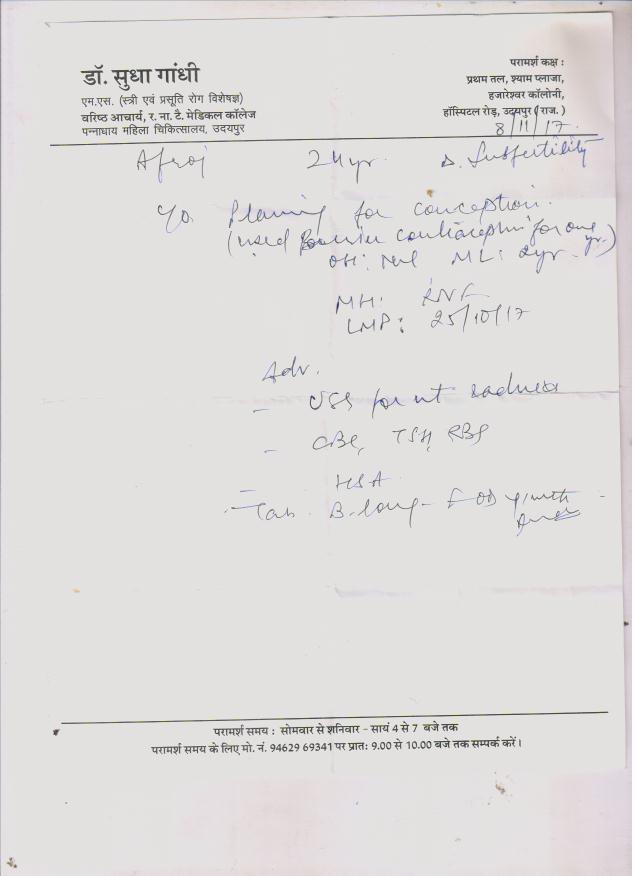 डॉ. सुधा गांधी
एम.एस. (स्त्री एवं प्रसूति रोग विशेषज्ञ)
वरिष्ठ आचार्य, र. ना. टै. मेडिकल कॉलेज
पन्नाधाय महिला चिकित्सालय, उदयपुर
परामर्श कक्ष :
प्रथम तल, श्याम प्लाजा,
हजारेश्वर कॉलोनी,
हॉस्पिटल रोड़, उदयपुर (राज.)
8/11/17
Afroj 24 yr. Subfertility
Planning for conception.
(used Barrier contraception for one yr.)
OH: Nil ML: 2yr
MH: RNF
LMP: 25/10/17
Adv.
- USS for ut
- CBC, TSH, RBS
- HSA
- Tab. B.long-F OD
परामर्श समय : सोमवार से शनिवार - सायं 4 से 7 बजे तक
परामर्श समय के लिए मो. नं. 94629 69341 पर प्रातः 9.00 से 10.00 बजे तक सम्पर्क करें।